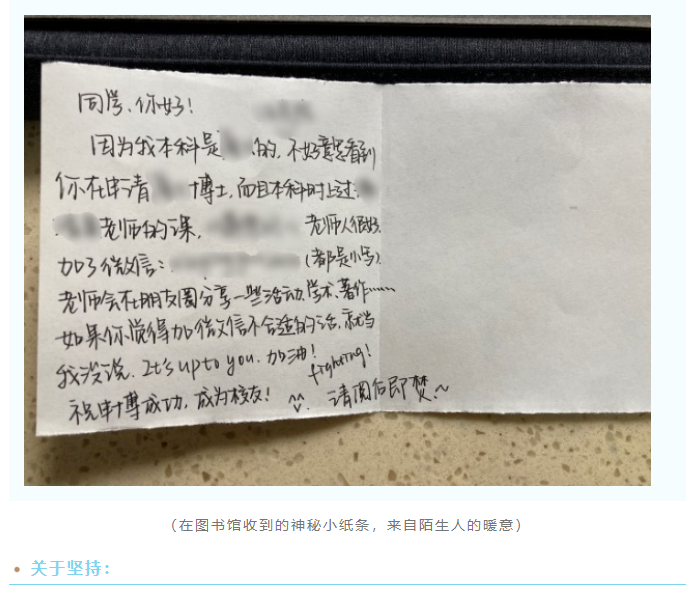 同学、你好！
因为我本科是 的，不好意思看到
你在申请 博士，而且本科时上过
老师的课， 老师人很好，
加了微信： （都是小写）
老师会在朋友圈分享一些活动、学术、著作……
如果你觉得加微信不合适的话，就当
我没说. It's up to you. 加油！
fighting!
祝申博成功，成为校友！ ^^ 请阅后即焚~
（在图书馆收到的神秘小纸条，来自陌生人的暖意）
• 关于坚持：